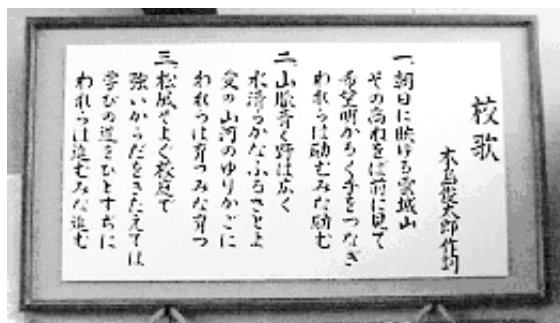 校歌
木島俊太郎作詞
一、朝日に映ゆる雲城山
その高ねをば前に見て
希望明かるく手をつなぎ
われらは励むみな励む
二、山脈青く野は広く
水清らかなふるさとよ
愛の山河のゆりかごに
われらは育つみな育つ
三、松風そよぐ校庭で
強いからだをきたえては
学びの道をひとすぢに
われらは進むみな進む